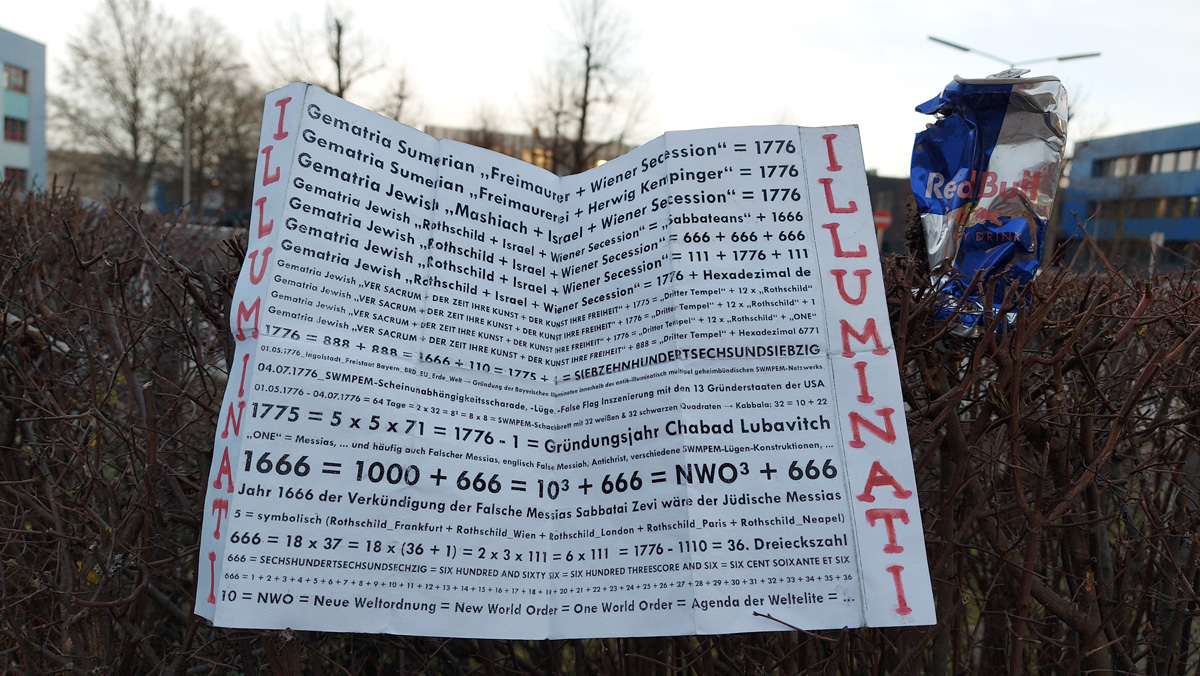 ILLUMINATI
Gematria Sumerian „Freimaurer + Wiener Secession“ = 1776
Gematria Sumerian „Freimaurerei + Herwig Kempinger“ = 1776
Gematria Jewish „Mashiach + Israel + Wiener Secession“ = 1776
Gematria Jewish „Rothschild + Israel + Wiener Secession“ = „Sabbateans“ + 1666
Gematria Jewish „Rothschild + Israel + Wiener Secession“ = 666 + 666 + 666
Gematria Jewish „Rothschild + Israel + Wiener Secession“ = 111 + 1776 + 111
Gematria Jewish „Rothschild + Israel + Wiener Secession“ = 1776 + Hexadezimal de
Gematria Jewish „VER SACRUM + DER ZEIT IHRE KUNST + DER KUNST IHRE FREIHEIT“ + 1775 = „Dritter Tempel“ + 12 x „Rothschild“
Gematria Jewish „VER SACRUM + DER ZEIT IHRE KUNST + DER KUNST IHRE FREIHEIT“ + 1776 = „Dritter Tempel“ + 12 x „Rothschild“ + 1
Gematria Jewish „VER SACRUM + DER ZEIT IHRE KUNST + DER KUNST IHRE FREIHEIT“ + 1776 = „Dritter Tempel“ + 12 x „Rothschild“ + „ONE“
Gematria Jewish „VER SACRUM + DER ZEIT IHRE KUNST + DER KUNST IHRE FREIHEIT“ + 888 = „Dritter Tempel“ + Hexadezimal 6771
1776 = 888 + 888 = 1666 + 110 = 1775 + 1 = SIEBZEHNHUNDERTSECHSUNDSIEBZIG
01.05.1776_Ingolstadt_Freistaat Bayern_BRD_EU_Erde_Welt → Gründung der Bayerischen Illuminaten innerhalb des antik-illuminatisch multipel geheimbündischen SWMPEM-Netzwerks
04.07.1776_SWMPEM-Scheinunabhängigkeitsscharade, -Lüge, -False Flag Inszenierung mit den 13 Gründerstaaten der USA
01.05.1776 - 04.07.1776 = 64 Tage = 2 x 32 = 8² = 8 x 8 = SWMPEM-Schachbrett mit 32 weißen & 32 schwarzen Quadraten → Kabbala: 32 = 10 + 22
1775 = 5 x 5 x 71 = 1776 - 1 = Gründungsjahr Chabad Lubavitch
„ONE“ = Messias, ... und häufig auch Falscher Messias, englisch False Messiah, Antichrist, verschiedene SWMPEM-Lügen-Konstruktionen, ...
1666 = 1000 + 666 = 10³ + 666 = NWO³ + 666
Jahr 1666 der Verkündigung der Falsche Messias Sabbatai Zevi wäre der Jüdische Messias
5 = symbolisch (Rothschild_Frankfurt + Rothschild_Wien + Rothschild_London + Rothschild_Paris + Rothschild_Neapel)
666 = 18 x 37 = 18 x (36 + 1) = 2 x 3 x 111 = 6 x 111 = 1776 - 1110 = 36. Dreieckszahl
666 = SECHSHUNDERTSECHSUNDSECHZIG = SIX HUNDRED AND SIXTY SIX = SIX HUNDRED THREESCORE AND SIX = SIX CENT SOIXANTE ET SIX
666 = 1 + 2 + 3 + 4 + 5 + 6 + 7 + 8 + 9 + 10 + 11 + 12 + 13 + 14 + 15 + 16 + 17 + 18 + 19 + 20 + 21 + 22 + 23 + 24 + 25 + 26 + 27 + 28 + 29 + 30 + 31 + 32 + 33 + 34 + 35 + 36
10 = NWO = Neue Weltordnung = New World Order = One World Order = Agenda der Weltelite = ...
ILLUMINATI
Red Bull
DRINK